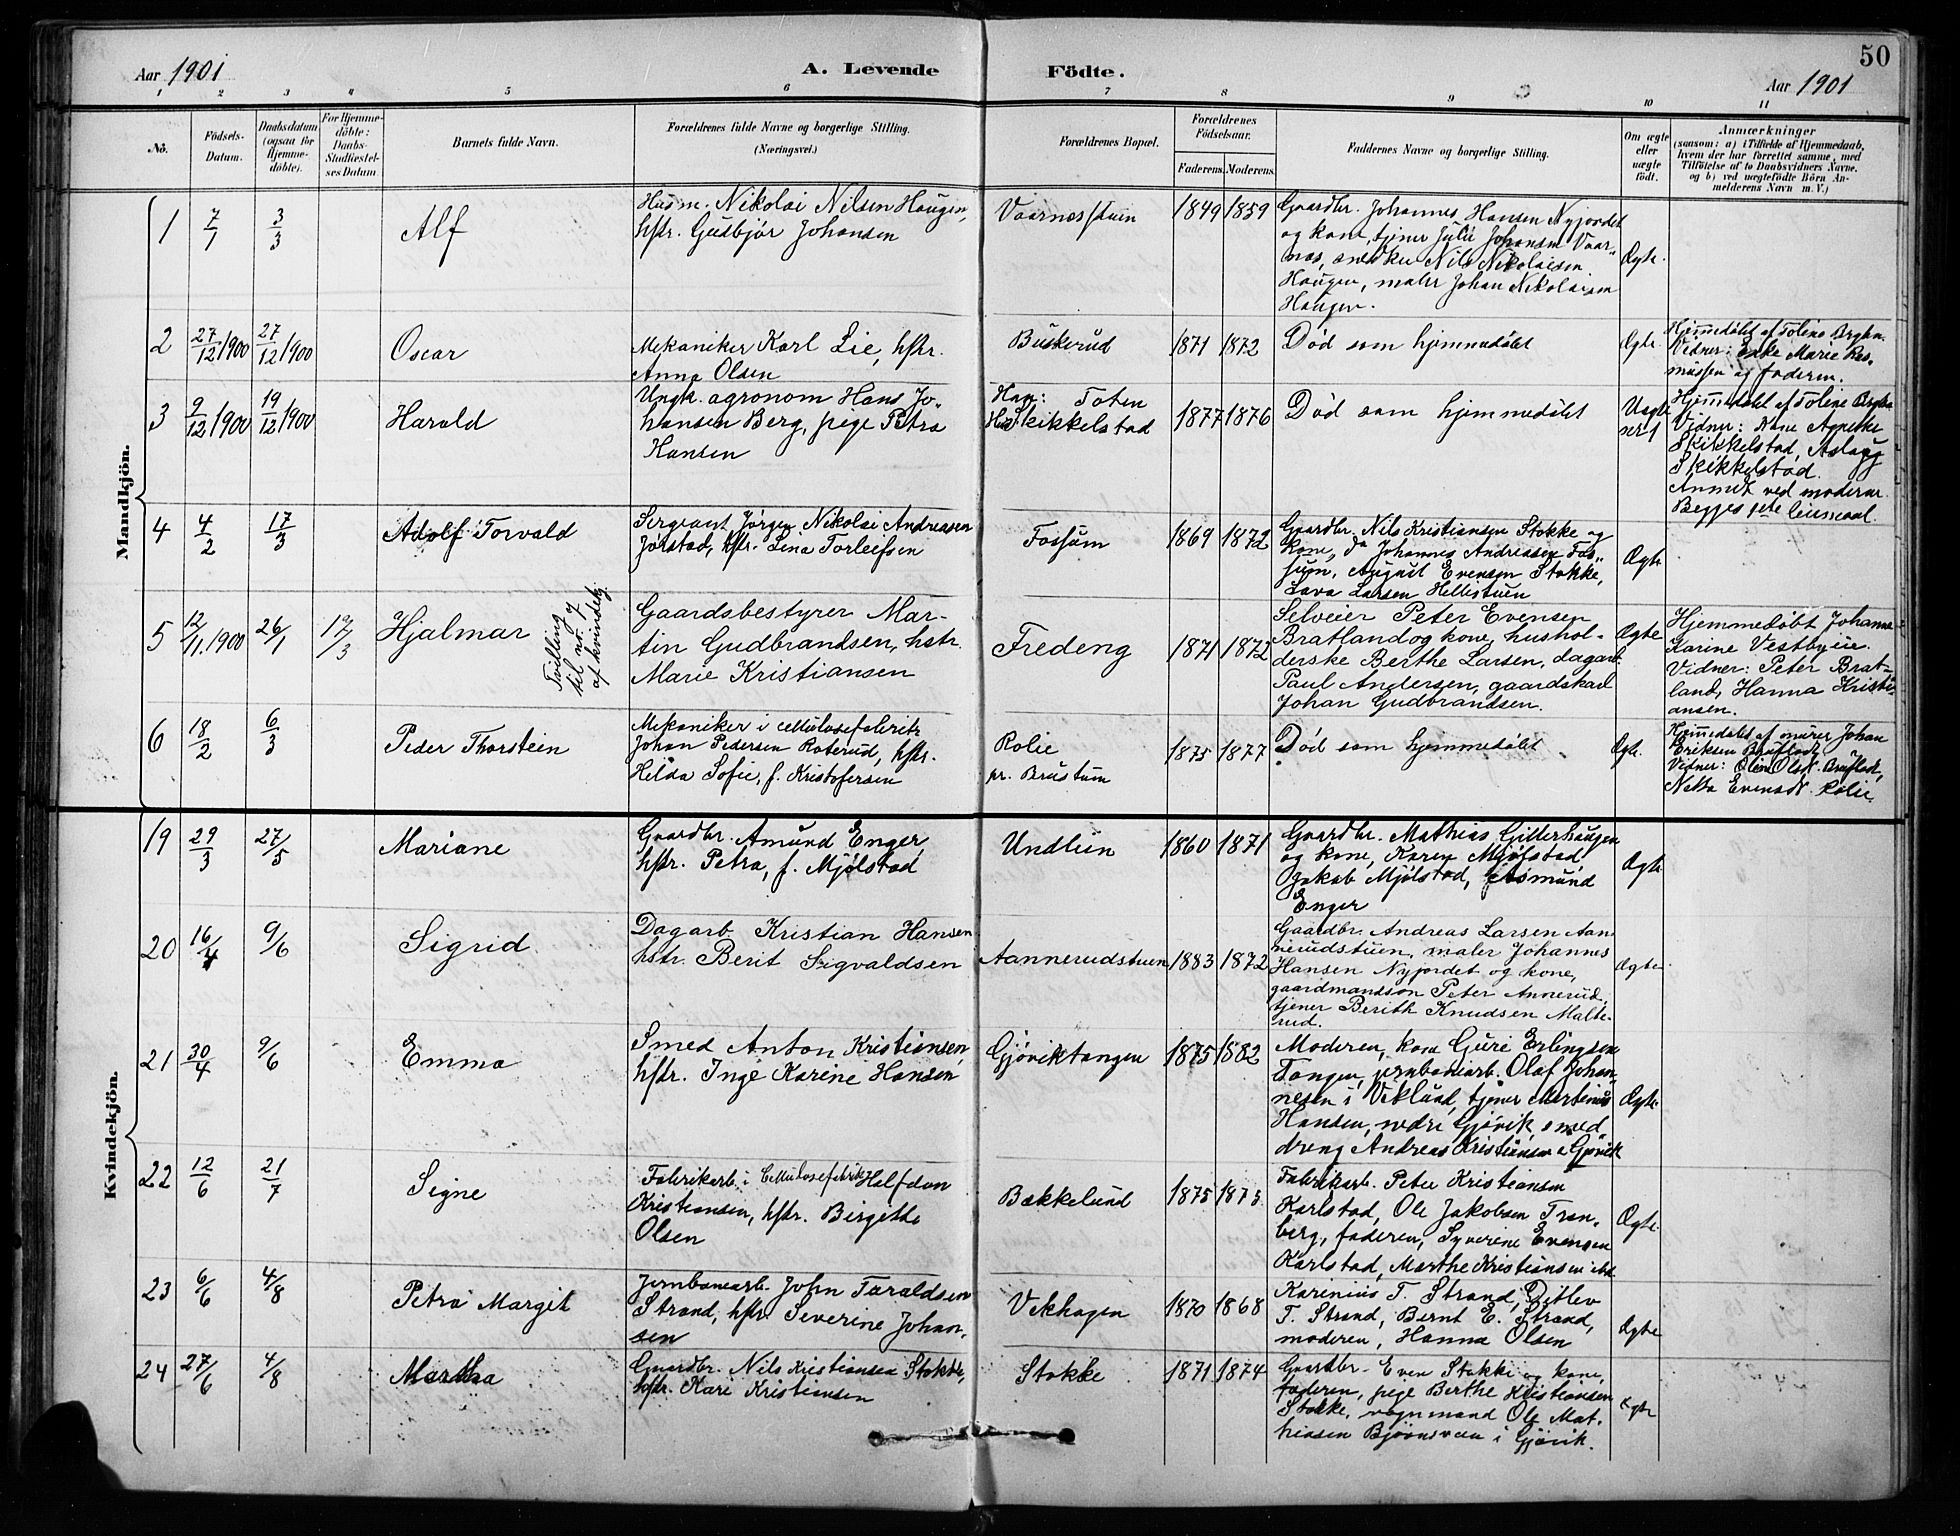 50
Aar 1901
A. Levende
Födte.
Aar 1901
1 2 3 4 5 6 7 8 9 10 11
No.
Födsels-
Datum.
Daabsdatum
(ogsaa for
Hjemme-
döbte).
For Hjemme-
döbte:
Daabs-
Stadfæstel-
ses Datum
Barnets fulde Navn.
Forældrenes fulde Navne og borgerlige Stilling.
(Næringsvei.)
Forældrenes Bopæl.
Forældrenes
Födselsaar.
Faderens. Moderens.
Faddernes Navne og borgerlige Stilling.
Om ægte
eller
uægte
födt.
Anmærkninger
(saasom: a) i Tilfælde af Hjemmedaab,
hvem der har forrettet samme, med
Tilföielse af to Daabsvidners Navne.
og b) ved uægtefödte Börn An-
melderens Navn m. V.)
Mandkjön.
1 7/1 3/3
Alf
Husm. Nikolai Nilsen Haugen,
hstr. Gudbjør Johansen
Vaarnesstuen
1849 1859
Gaardbr. Johannes Hansen Nyjordet
og kone, tjener Julie Johansen Vaar-
nes, snekker Nils Nikolaisen
Haugen, maler Johan Nikolaisen
Haugen.
Ægte.
2 27/12 1900 27/12 1900
Oscar
Mekaniker Karl Lie, hstr.
Anna Olsen
Buskerud
1871 1872
Død som hjemmedøbt
Ægte.
Hjemmedøbt af Toline
Vidner: Enke Marie Ras-
mussen og faderen.
3 9/12 1900 19/12 1900
Harald
Ungk. agronom Hans Jo-
hansen Berg, pige Petra
Hansen
Han: Toten
Hun: Skikkelstad
1877 1876
Død som hjemmedøbt
Uægte
nr 1
Hjemmedøbt af Toline
Vidner:
Skikkelstad, Aslaug
Skikkelstad.
Anmeldt ved moderen.
Begges 1ste leiermaal.
4 4/2 17/3
Adolf Torvald
Sergeant Jørgen Nikolai Andreasen
Jørstad, hstr. Lina Torleifsen
Fossum
1869 1872
Gaardbr. Nils Kristiansen Stokke og
kone, do Johannes Andreasen Fos-
sum, August Evensen Stokke,
Lava Larsen Hellestuen
Ægte
5 12/11 1900 26/1 17/3
Hjalmar
Tvilling
til nr. 7
af kvindekj.
Gaardsbestyrer Mar-
tin Gudbrandsen, hstr.
Marie Kristiansen
Fredeng
1871 1872
Selveier Peter Evensen
Bratland og kone, hushol-
derske Berthe Larsen, dagarb.
Paul Andersen, gaardskarl
Johan Gudbrandsen.
Ægte
Hjemmedøbt Johanne
Karine Vestbyeie.
Vidner: Peter Brat-
land, Hanna Kristi-
ansen.
6 18/2 6/3
Peder Thorstein
Mekaniker i cellulosefabrik
Johan Pedersen Roterud, hstr.
Helda Sofie, f. Kristofersen
Rolie
pr. Brustum
1875 1877
Død som hjemmedøbt
Ægte.
Hjemmedøbt af murer Johan
Eriksen Brufladt
Vidner: Olin Olsdt. Brufladt,
Netta Evensdt. Rolie.
Kvindekjön.
19 29/3 27/5
Mariane
Gaardbr. Amund Enger
hstr. Petra, f. Mjølstad
Undlien
1860 1871
Gaardbr. Mathias Gitterhaugen
og kone, Karen Mjølstad,
Jakob Mjølstad, Asmund
Enger
Ægte
20 16/4 9/6
Sigrid
Dagarb. Kristian Hansen
hstr. Berit Sigvaldsen
Aannerudstuen
1883 1872
Gaardbr. Andreas Larsen Aan-
nerudstuen, maler Johannes
Hansen Nyjordet og kone,
gaardmandsøn Peter Annerud,
tjener Berith Knudsen Malte-
rud.
Ægte
21 30/4 9/6
Emma
Smed Anton Kristiansen,
hstr. Inge Karine Hansen
Gjøviktangen
1875 1882
Moderen, kone Guri Erlingsen
Tangen, jernbanearb. Olaf Johan-
nesen i Veklund, tjener Martinus
Hansen, nedre Gjøvik, smed-
dreng Andreas Kristiansen Gjøvik
Ægte
22 12/6 21/7
Signe
Fabrikarb. i Cellulosefabrik Halfdan
Kristiansen, hstr. Birgithe
Olsen
Bækkelund
1875 1873
Fabrikarb. Peter Kristiansen
Karlstad, Ole Jakobsen Tran-
berg, faderen, Syverine Evensen
Karlstad, Marthe Kristiansen ibd.
Ægte
23 6/6 4/8
Petra Margit
Jernbanearb. John Taraldsen
Strand, hstr. Severine Johan-
sen
Vekhagen
1870 1868
Karinius T. Strand, Ditlev
T. Strand, Bernt E. Strand,
moderen, Hanna Olsen
Ægte
24 27/6 4/8
Martha
Gaardbr. Nils Kristiansen Stokke,
hstr. Kari Kristiansen
Stokke
1871 1874
Gaardbr. Even Stokke og kone,
faderen, pige Berthe Kristiansen
Stokke, vognmand Ole Mat-
hiasen Bjørnsveen i Gjøvik.
Ægte